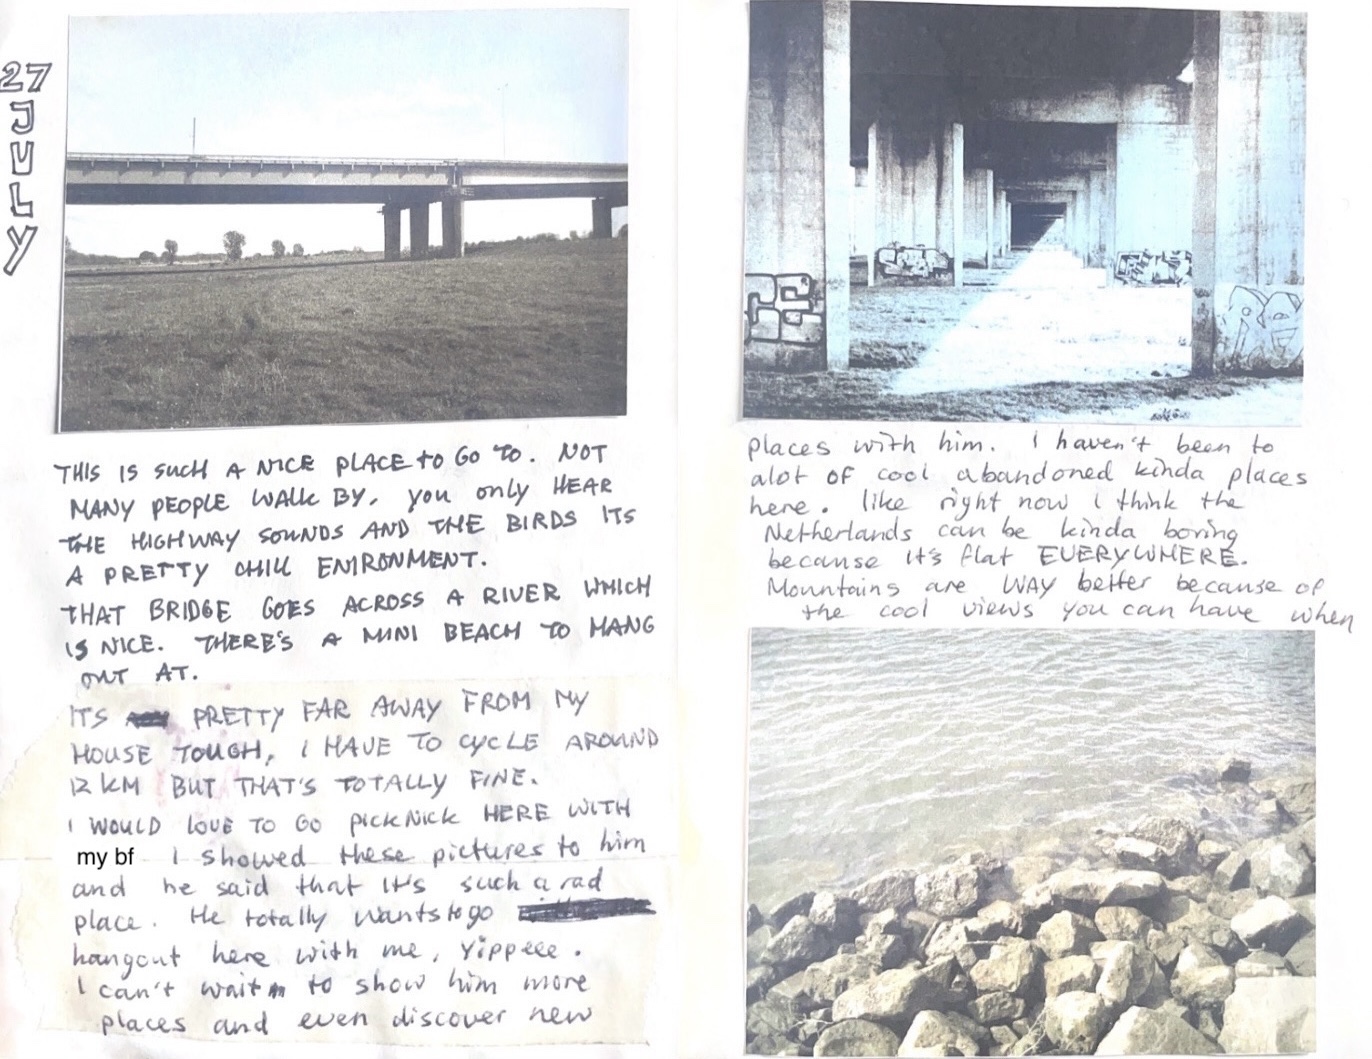 27
JULY
THIS IS SUCH A NICE PLACE TO GO TO. NOT
MANY PEOPLE WALK BY, you only HEAR
THE HIGHWAY SOUNDS AND THE BIRDS ITS
A PRETTY CHILL ENIRONMENT.
THAT BRIDGE GOES ACROSS A RIVER WHICH
IS NICE. THERE'S A MINI BEACH TO HANG
OUT AT.
ITS PRETTY FAR AWAY FROM MY
HOUSE TOUGH, I HAVE TO CYCLE AROUND
12 KM BUT THAT'S TOTALLY FINE.
I WOULD LOVE TO GO PICKNICK HERE WITH
my bf I showed these pictures to him
and he said that it's such a rad
place. He totally wants to go
hangout here with me, Yippeee.
I can't wait to show him more
places and even discover new
places with him. I haven't been to
alot of cool abandoned kinda places
here. like right now i think the
Netherlands can be kinda boring
because it's flat EVERYWHERE.
Mountains are WAY better because of
the cool views you can have when